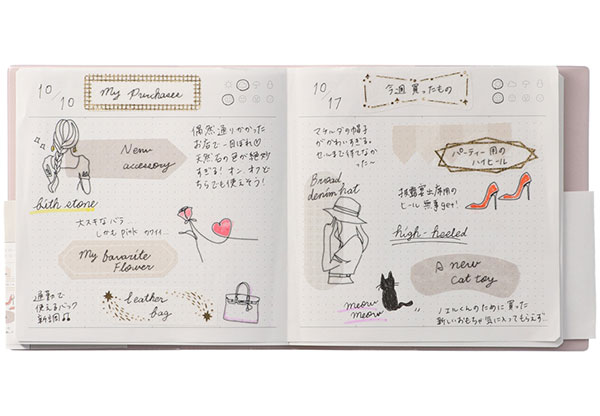 10/10
My Purchases
New
accessory
偶然通りかかった
お店で一目ぼれ♡
天然石の色が絶妙
すぎる！オン オフど
ちらでも使えそう！
birth stone
大スキなバラ
しかも pink カワイイ…
My favorite
Flower
通勤で
使えるバッグ
新調♫
leather
bag
10/17
今週買ったもの
マチルダの帽子
がかわいすぎる。
セールまで待てなか
った〜
パーティー用の
ハイヒール
Broad
denim hat
披露宴出席用の
ヒール無事get!
high-heeled
A new
cat toy
meow
meow
ノエルくんのために買った
新しいおもちゃ 気に入ってもらえず